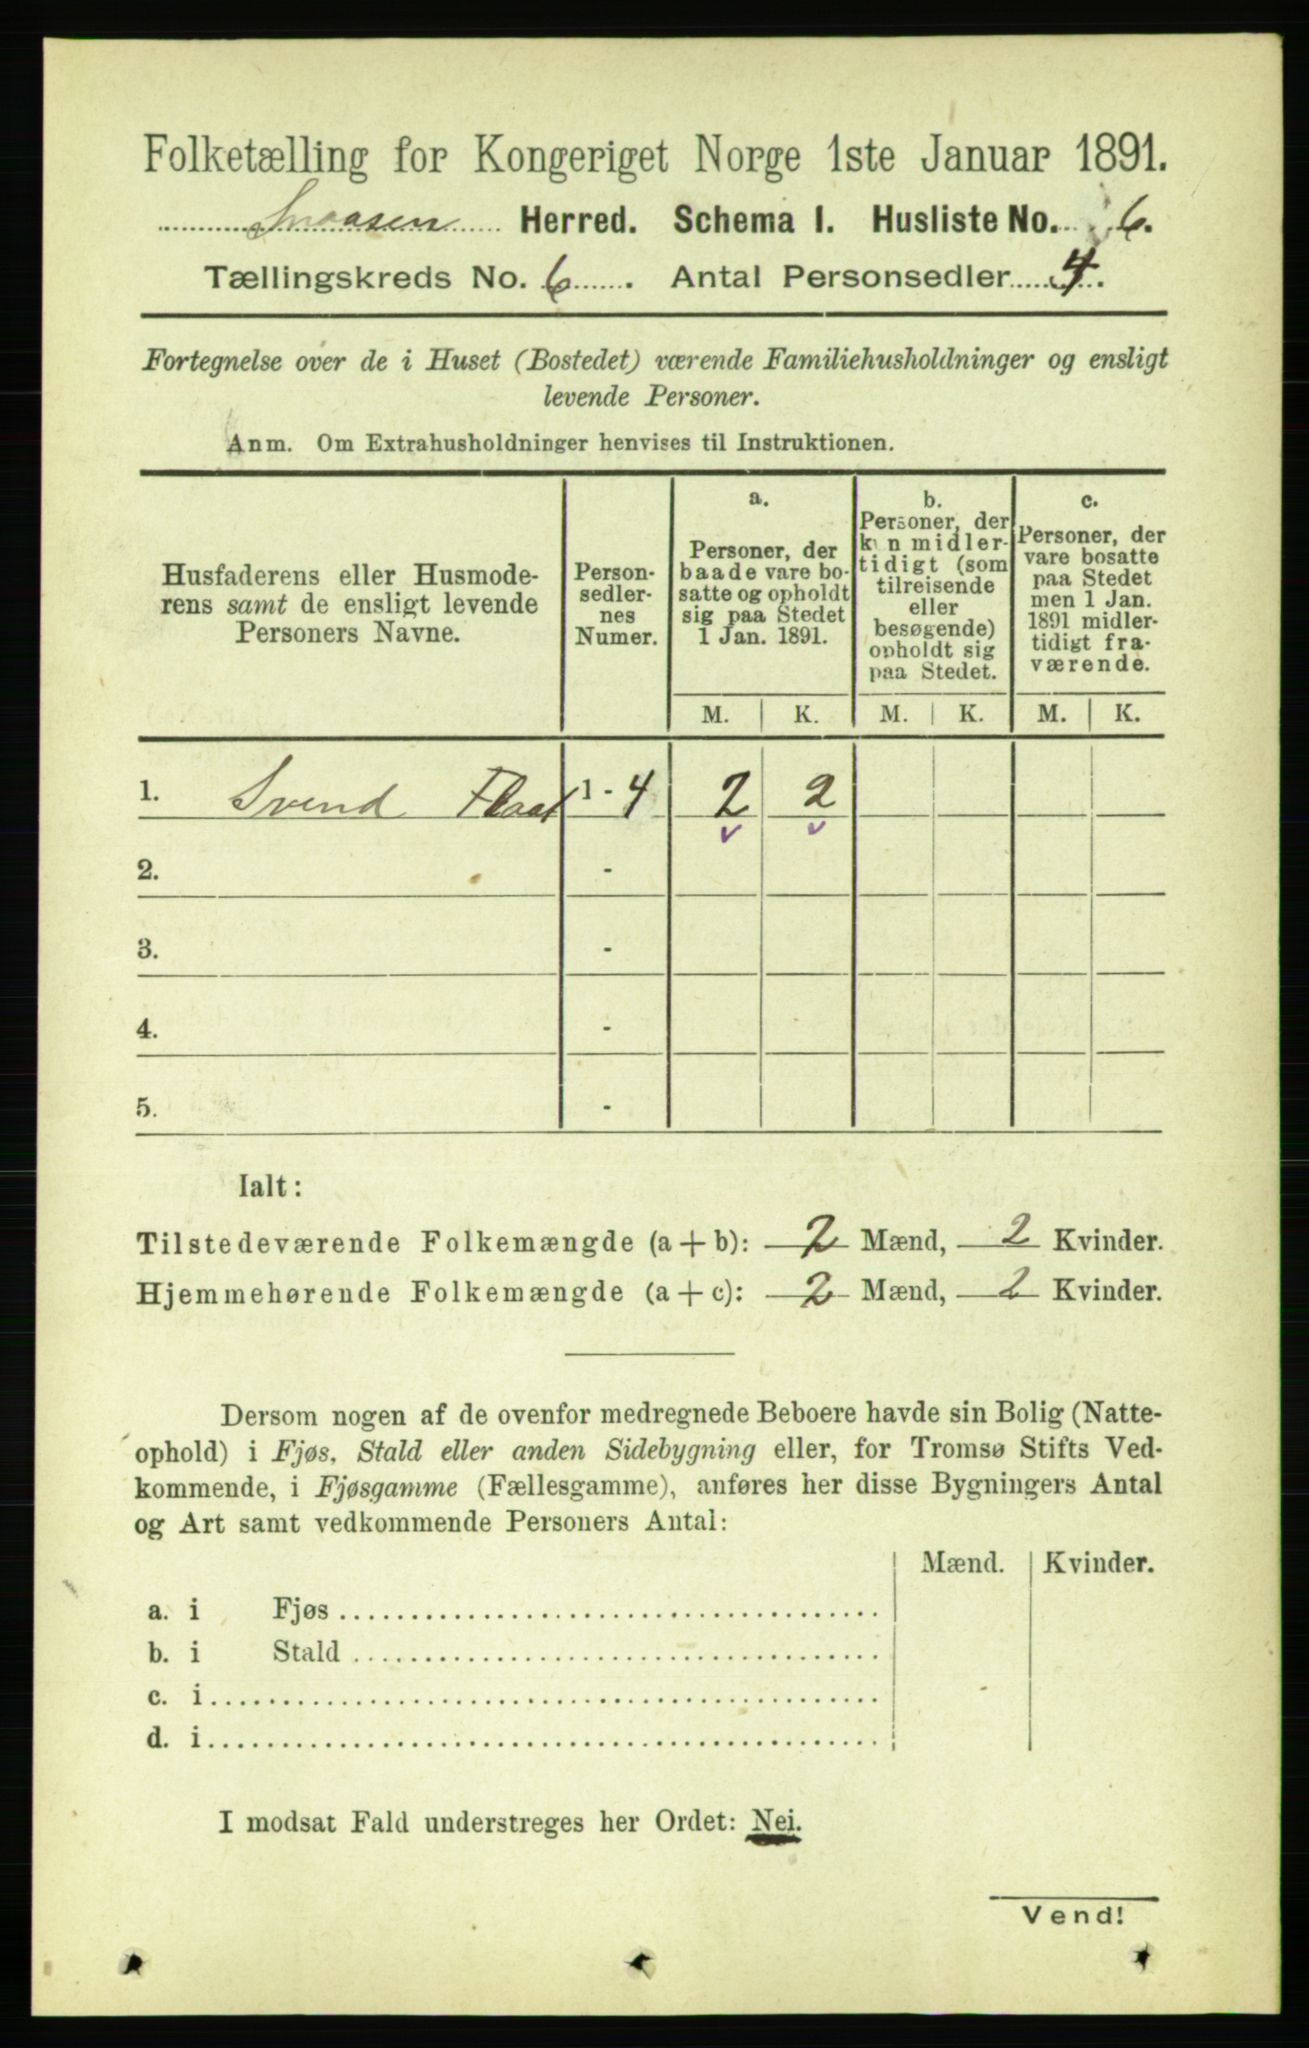 Folketælling for Kongeriget Norge 1ste Januar 1891.
Snaasen Herred. Schema I. Husliste No. 6.
Tællingskreds No. 6. Antal Personsedler 4.
Fortegnelse over de i Huset (Bostedet) værende Familiehusholdninger og ensligt
levende Personer.
Anm. Om Extrahusholdninger henvises til Instruktionen.
Husfaderens eller Husmode-
rens samt de ensligt levende
Personers Navne.
Person-
sedler-
nes
Numer.
a.
Personer, der
baade vare bo-
satte og opholdt
sig paa Stedet
1 Jan. 1891.
b.
Personer, der
kun midler-
tidigt (som
tilreisende
eller
besøgende)
opholdt sig
paa Stedet.
c.
Personer, der
vare bosatte
paa Stedet
men 1 Jan.
1891 midler-
tidigt fra-
værende.
M. K. M. K. M. K.
1. Svend Flaat 1 - 4 2 2
2. -
3. -
4. -
5. -
Ialt:
Tilstedeværende Folkemængde (a + b): 2 Mænd, 2 Kvinder.
Hjemmehørende Folkemængde (a + c): 2 Mænd, 2 Kvinder.
Dersom nogen af de ovenfor medregnede Beboere havde sin Bolig (Natte-
ophold) i Fjøs, Stald eller anden Sidebygning eller, for Tromsø Stifts Ved-
kommende, i Fjøsgamme (Fællesgamme), anføres her disse Bygningers Antal
og Art samt vedkommende Personers Antal:
Mænd. Kvinder.
a. i Fjøs
b. i Stald
c. i
d. i
I modsat Fald understreges her Ordet: Nei.
Vend!